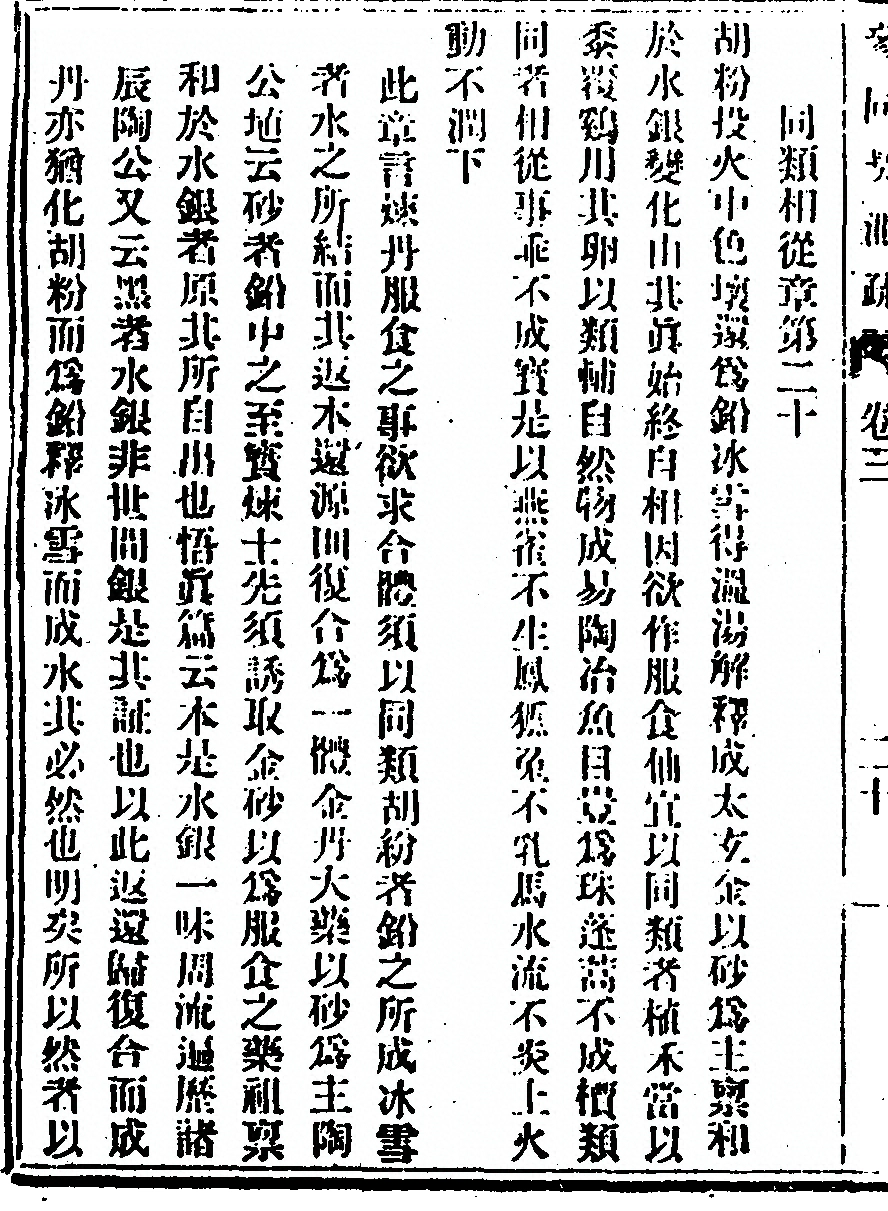 參同契測疏 卷三 二十
同類相從章第二十
胡粉投火中色壞還爲鉛冰雪得溫湯解釋成太玄金以砂爲主稟和
於水銀變化由其眞始終自相因欲作服食仙宜以同類者植禾當以
黍覆鷄用其卵以類輔自然物成易陶冶魚目豈爲珠蓬蒿不成檟類
同者相從事乖不成寶是以燕雀不生鳳狐兔不乳馬水流不炎上火
動不潤下
此章言煉丹服食之事欲求合體須以同類胡紛者鉛之所成冰雪
者水之所結而其返本還源囘復合爲一體金丹大藥以砂爲主陶
公埴云砂者鉛中之至寶煉士先須誘取金砂以爲服食之藥祖稟
和於水銀者原其所自出也悟眞篇云本是水銀一味周流遍歷諸
辰陶公又云黑者水銀非世間銀是其証也以此返還歸復合而成
丹亦猶化胡粉而爲鉛釋冰雪而成水其必然也明矣所以然者以